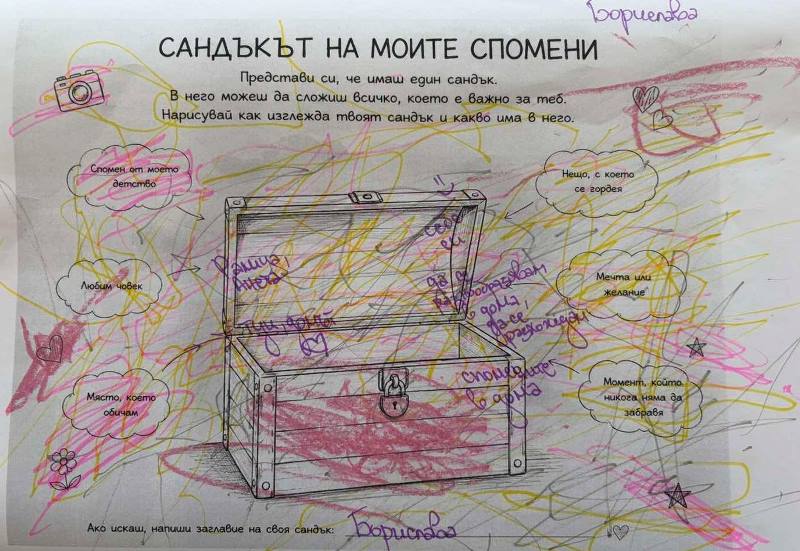 Борислава
САНДЪКЪТ НА МОИТЕ СПОМЕНИ
Представи си, че имаш един сандък.
В него можеш да сложиш всичко, което е важно за теб.
Нарисувай как изглежда твоят сандък и какво има в него.
Спомен от моето
детство
Нещо, с което
се гордея
себе
си
Любим човек
Галица,
Анета
Мечта или
желание
да се
разхождам
тук, дома
в дома,
да се
Място, което
обичам
Момент, който
никога няма да
забравя
спомените
в дома
Ако искаш, напиши заглавие на своя сандък: Борислава